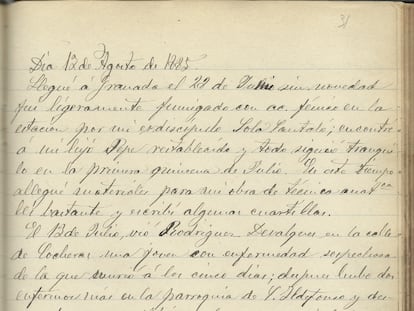 31
Dia 12 de Agosto de 1885.
Llegué á Granada el 22 de Junio sin novedad
fui ligeramente fumigado con ac. fénico en la
estación por mi exdiscípulo Sola Santaló; encontré
á mi hijo Pepe restablecido y todo siguió tranqui
lo en la primera quincena de Julio. En este tiempo
allegué materiales para mi obra de técnica ana
bastante y escribí algunas cuartillas.
El 13 de Julio, vió Rodriguez Devalgues en la calle
de Cocheras una joven con enfermedad sospechosa
de la que murió á los cinco dias; despues hubo dos
enfermos más en la parroquia de S. Ildefonso y